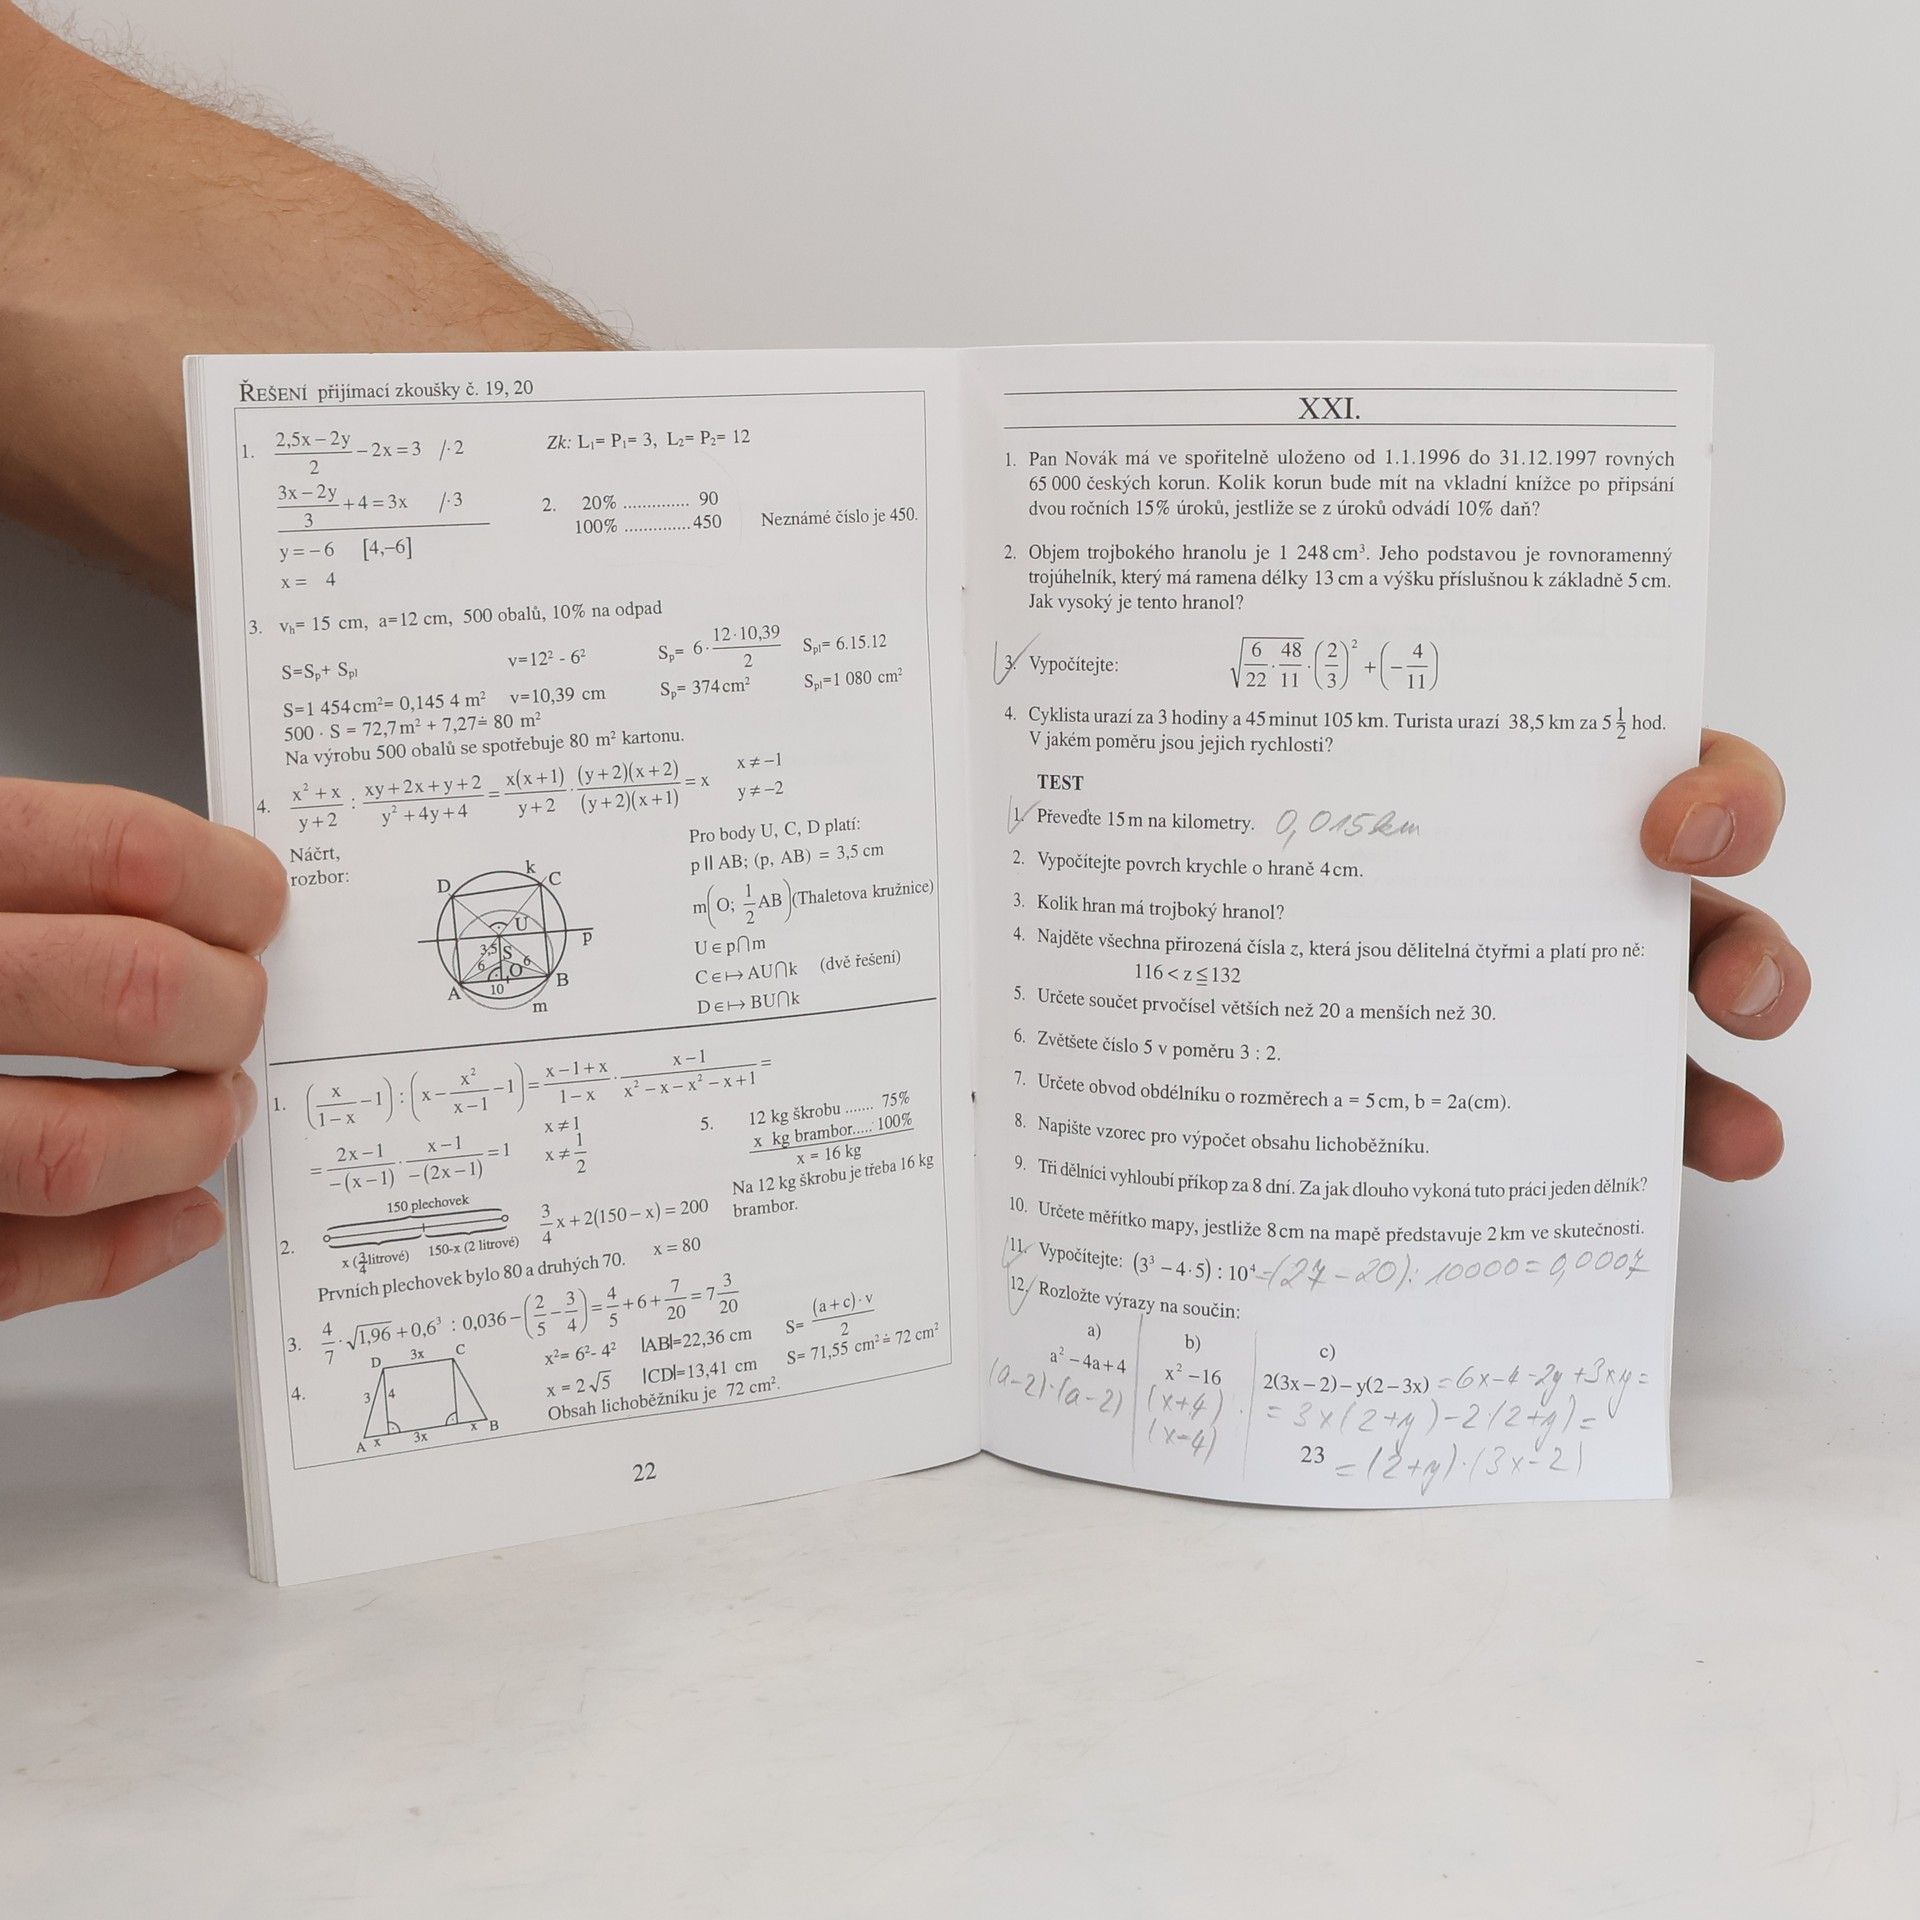 ŘEŠENÍ přijímací zkoušky č. 19, 20
1. (2,5x – 2y)/2 – 2x = 3 /·2
(3x – 2y)/3 + 4 = 3x /·3
y = – 6 [4,–6]
x = 4
Zk: L₁= P₁= 3, L₂= P₂= 12
2. 20% .............. 90
100% .............. 450
Neznámé číslo je 450.
3. vₕ= 15 cm, a=12 cm, 500 obalů, 10% na odpad
S=Sₚ+ Sₚₗ v=12² - 6² Sₚ= 6·(12·10,39)/2 Sₚₗ= 6.15.12
S=1 454 cm²= 0,145 4 m² v=10,39 cm Sₚ= 374 cm² Sₚₗ=1 080 cm²
500 · S = 72,7 m² + 7,27≐ 80 m²
Na výrobu 500 obalů se spotřebuje 80 m² kartonu.
4. (x² + x)/(y + 2) : (xy + 2x + y + 2)/(y² + 4y + 4) = x(x + 1)/(y + 2) · (y + 2)(x + 2)/(y + 2)(x + 1) = x x ≠ –1
y ≠ –2
Náčrt,
rozbor:
D k C
U p
3,5 S
6 O 6
A 10 B
m
Pro body U, C, D platí:
p ll AB; (p, AB) = 3,5 cm
m(O; 1/2 AB) (Thaletova kružnice)
U ∈ p⋂m
C ∈ ↦ AU⋂k (dvě řešení)
D ∈ ↦ BU⋂k
1. (x/(1 – x) – 1) : (x – x²/(x – 1) – 1) = (x – 1 + x)/(1 – x) · (x – 1)/(x² – x – x² – x + 1) =
= (2x – 1)/(–(x – 1)) · (x – 1)/(–(2x – 1)) = 1 x ≠ 1
x ≠ 1/2
5. 12 kg škrobu ....... 75%
x kg brambor..... 100%
x = 16 kg
Na 12 kg škrobu je třeba 16 kg
brambor.
150 plechovek
2. x (3/4 litrové) 150-x (2 litrové)
3/4 x + 2(150 – x) = 200
x = 80
Prvních plechovek bylo 80 a druhých 70.
3. 4/7 · √1,96 + 0,6³ : 0,036 – (2/5 – 3/4) = 4/5 + 6 + 7/20 = 7 3/20
4. D 3x C
3 4
A x 3x x B
x²= 6²- 4² |AB|=22,36 cm S= (a + c) · v/2
x = 2√5 |CD|=13,41 cm S= 71,55 cm² ≐ 72 cm²
Obsah lichoběžníku je 72 cm².
22
XXI.
1. Pan Novák má ve spořitelně uloženo od 1.1.1996 do 31.12.1997 rovných
65 000 českých korun. Kolik korun bude mít na vkladní knížce po připsání
dvou ročních 15% úroků, jestliže se z úroků odvádí 10% daň?
2. Objem trojbokého hranolu je 1 248 cm³. Jeho podstavou je rovnoramenný
trojúhelník, který má ramena délky 13 cm a výšku příslušnou k základně 5 cm.
Jak vysoký je tento hranol?
3. Vypočítejte: √(6/22 · 48/11) · (2/3)² + (– 4/11)
4. Cyklista urazí za 3 hodiny a 45 minut 105 km. Turista urazí 38,5 km za 5 1/2 hod.
V jakém poměru jsou jejich rychlosti?
TEST
1. Převeďte 15 m na kilometry. 0,015 km
2. Vypočítejte povrch krychle o hraně 4 cm.
3. Kolik hran má trojboký hranol?
4. Najděte všechna přirozená čísla z, která jsou dělitelná čtyřmi a platí pro ně:
116 < z ≦ 132
5. Určete součet prvočísel větších než 20 a menších než 30.
6. Zvětšete číslo 5 v poměru 3 : 2.
7. Určete obvod obdélníku o rozměrech a = 5 cm, b = 2a(cm).
8. Napište vzorec pro výpočet obsahu lichoběžníku.
9. Tři dělníci vyhloubí příkop za 8 dní. Za jak dlouho vykoná tuto práci jeden dělník?
10. Určete měřítko mapy, jestliže 8 cm na mapě představuje 2 km ve skutečnosti.
11. Vypočítejte: (3³ – 4·5) : 10⁴ = (27 – 20) : 10000 = 0,0007
12. Rozložte výrazy na součin:
a) b) c)
a² – 4a + 4 x² – 16 2(3x – 2) – y(2 – 3x) = 6x – 4 – 2y + 3xy =
(a–2)·(a–2) (x+4) = 3x(2+y) – 2(2+y) =
(x–4)
23 = (2+y)·(3x–2)